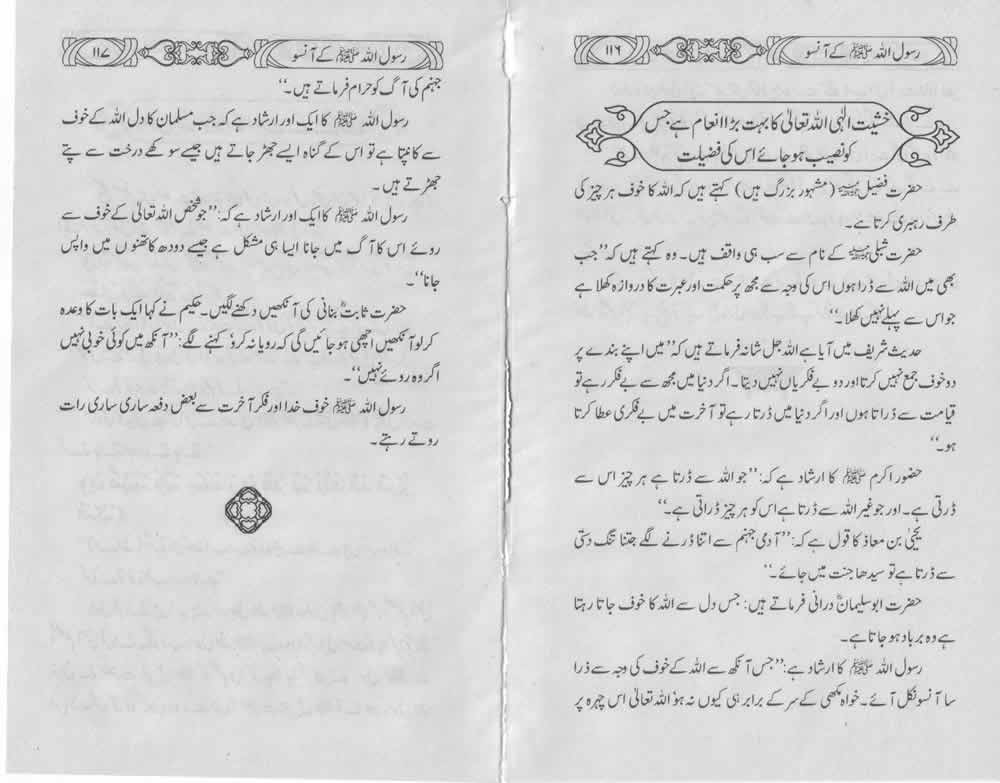 رسول اللہ ﷺ کے آنسو
۱۱۶
خشیت الٰہی اللہ تعالیٰ کا بہت بڑا انعام ہے جس
کو نصیب ہو جائے اس کی فضیلت
حضرت فضیلؒ (مشہور بزرگ ہیں) کہتے ہیں کہ اللہ کا خوف ہر چیز کی
طرف رہبری کرتا ہے۔
حضرت شبلیؒ کے نام سے سب ہی واقف ہیں۔ وہ کہتے ہیں کہ ”جب
بھی میں اللہ سے ڈرا ہوں اس کی وجہ سے مجھ پر حکمت اور عبرت کا دروازہ کھلا ہے
جو اس سے پہلے نہیں کھلا۔“
حدیث شریف میں آیا ہے اللہ جل شانہ فرماتے ہیں کہ ”میں اپنے بندے پر
دو خوف جمع نہیں کرتا اور دو بے فکریاں نہیں دیتا۔ اگر دنیا میں مجھ سے بے فکر رہے تو
قیامت سے ڈراتا ہوں اور اگر دنیا میں ڈرتا رہے تو آخرت میں بے فکری عطا کرتا
ہو۔“
حضور اکرم ﷺ کا ارشاد ہے کہ: ”جو اللہ سے ڈرتا ہے ہر چیز اس سے
ڈرتی ہے۔ اور جو غیر اللہ سے ڈرتا ہے اس کو ہر چیز ڈراتی ہے۔“
یحییٰ بن معاذ کا قول ہے کہ: ”آدمی جہنم سے اتنا ڈرنے لگے جتنا تنگ دستی
سے ڈرتا ہے تو سیدھا جنت میں جائے۔“
حضرت ابو سلیمانؒ درانی فرماتے ہیں: جس دل سے اللہ کا خوف جاتا رہتا
ہے وہ برباد ہو جاتا ہے۔
رسول اللہ ﷺ کا ارشاد ہے: ”جس آنکھ سے اللہ کے خوف کی وجہ سے ذرا
سا آنسو نکل آئے۔ خواہ مکھی کے سر کے برابر ہی کیوں نہ ہو اللہ تعالیٰ اس چہرہ پر
رسول اللہ ﷺ کے آنسو
۱۱۷
جہنم کی آگ کو حرام فرماتے ہیں۔“
رسول اللہ ﷺ کا ایک اور ارشاد ہے کہ جب مسلمان کا دل اللہ کے خوف
سے کانپتا ہے تو اس کے گناہ ایسے جھڑ جاتے ہیں جیسے سوکھے درخت سے پتے
جھڑتے ہیں۔
رسول اللہ ﷺ کا ایک اور ارشاد ہے کہ: ”جو شخص اللہ تعالیٰ کے خوف سے
روئے اس کا آگ میں جانا ایسا ہی مشکل ہے جیسے دودھ کا تھنوں میں واپس
جانا“۔
حضرت ثابتؒ بنانی کی آنکھیں دکھنے لگیں۔ حکیم نے کہا ایک بات کا وعدہ
کر لو آنکھیں اچھی ہو جائیں گی کہ رویا نہ کرو‘ کہنے لگے: ”آنکھ میں کوئی خوبی نہیں
اگر وہ روئے نہیں“۔
رسول اللہ ﷺ خوف خدا اور فکر آخرت سے بعض دفعہ ساری ساری رات
روتے رہتے۔